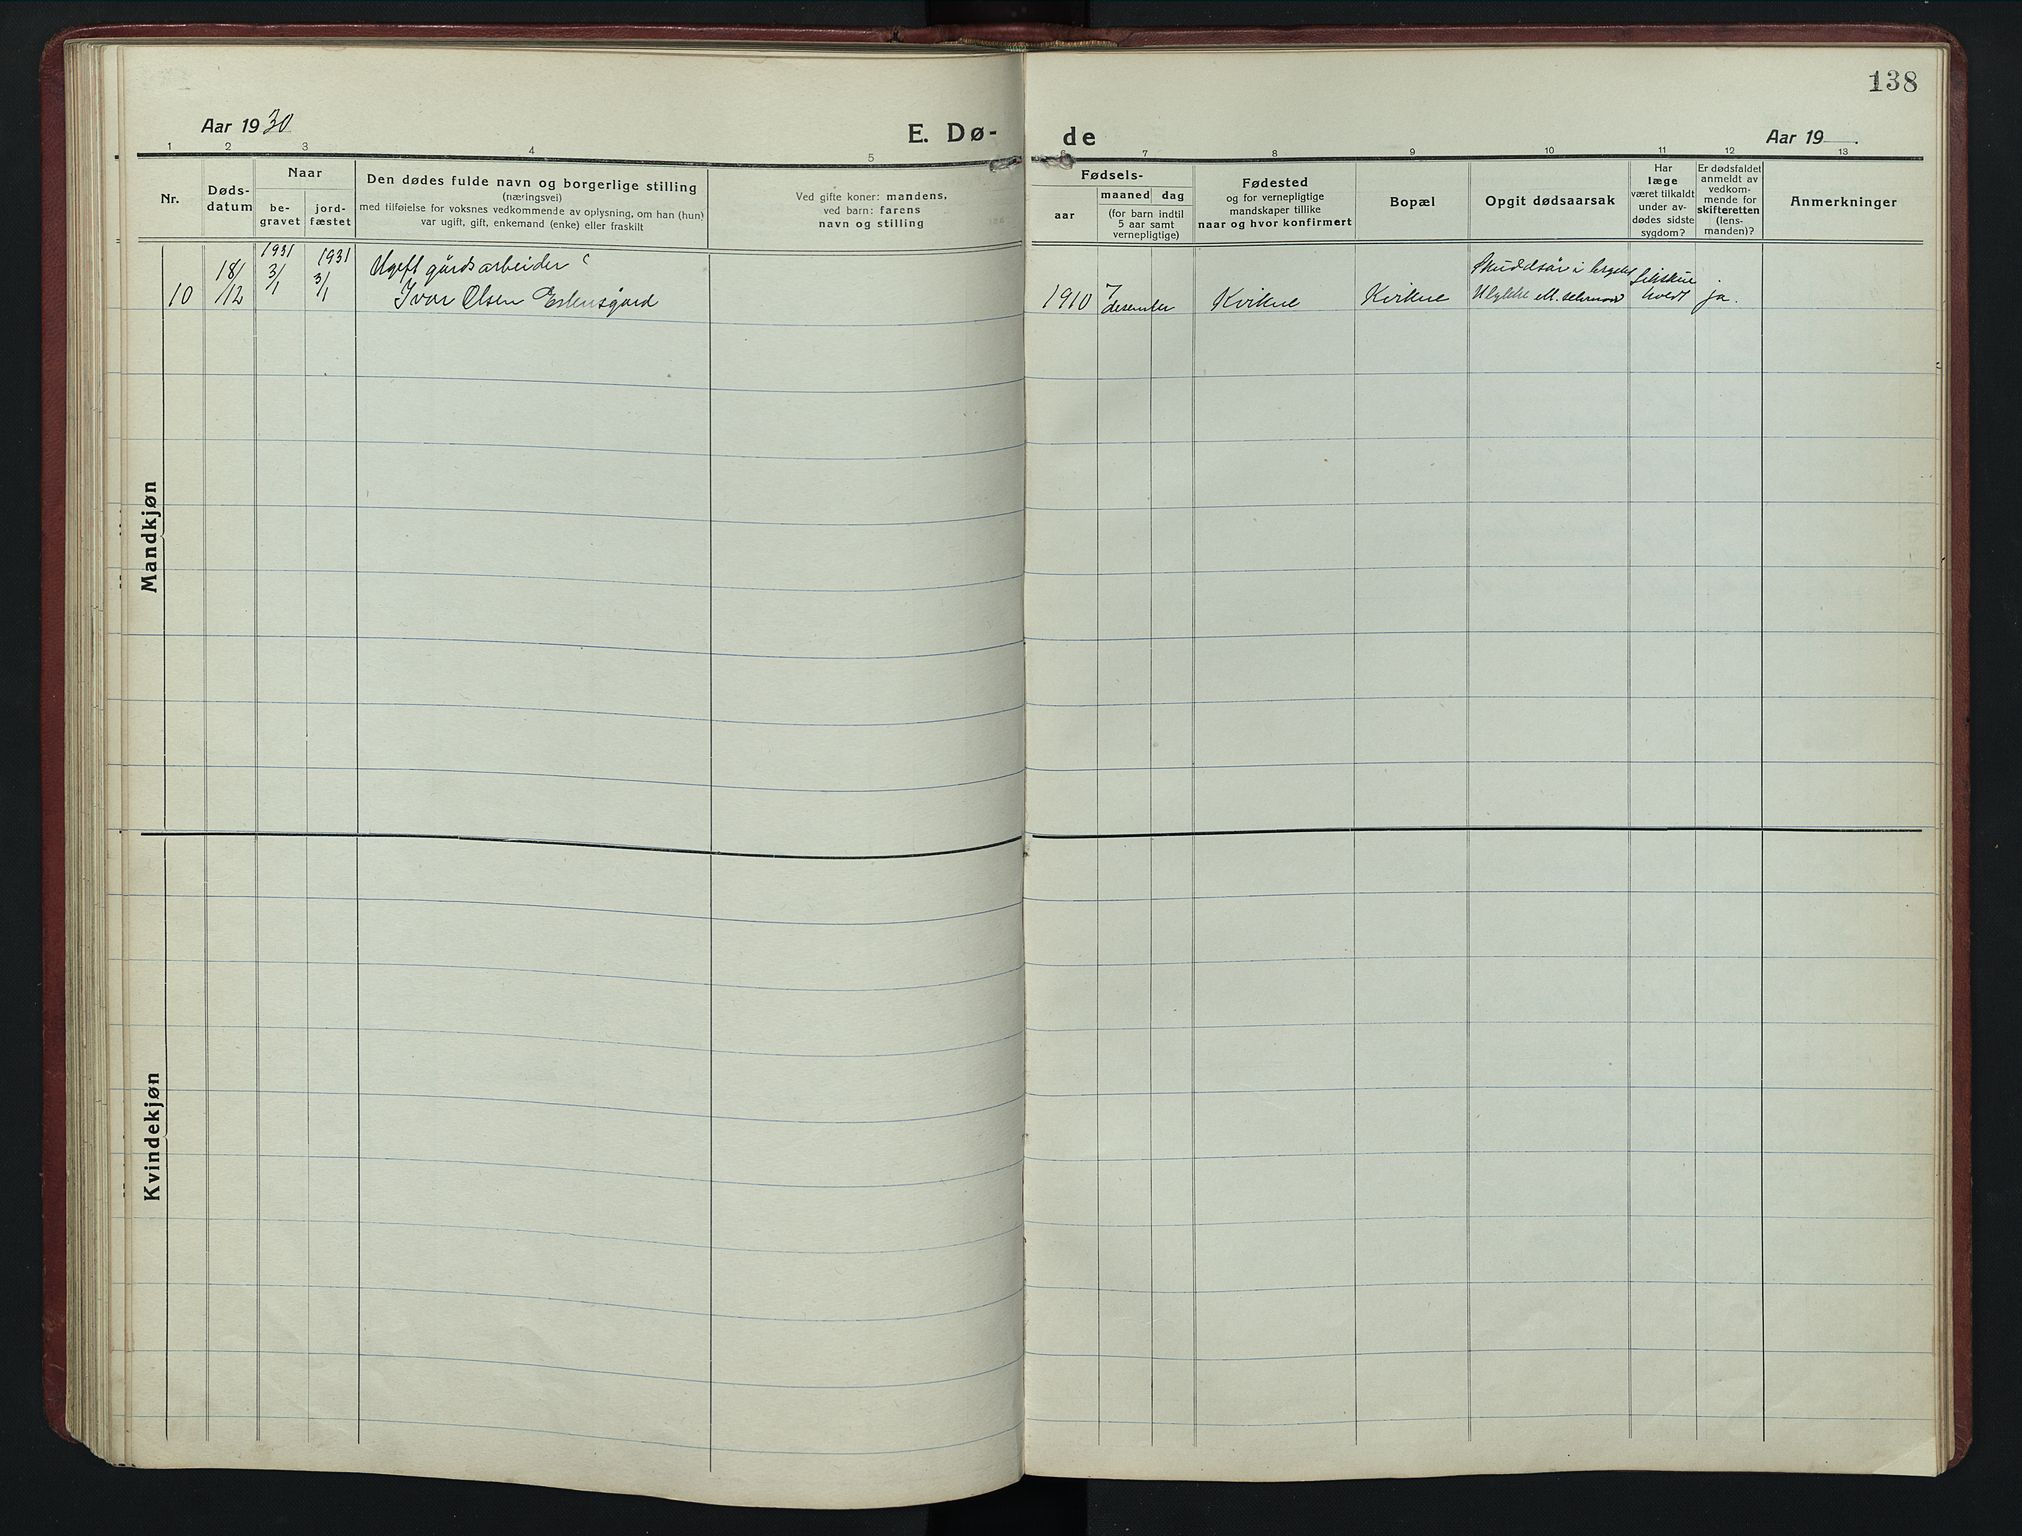 138
Aar 1930
E. Dø-
de
Aar 19
1 2 3 4 5 6 7 8 9 10 11 12 13
Nr.
Døds-
datum
Naar
be-
gravet
jord-
fæstet
Den dødes fulde navn og borgerlige stilling
(næringsvei)
med tilføielse for voksnes vedkommende av oplysning, om han (hun)
var ugift, gift, enkemand (enke) eller fraskilt
Ved gifte koner: mandens,
ved barn: farens
navn og stilling
Fødsels-
aar
maaned dag
(for barn indtil
5 aar samt
vernepligtige)
Fødested
og for vernepligtige
mandskaper tillike
naar og hvor konfirmert
Bopæl
Opgit dødsaarsak
Har
læge
været tilkaldt
under av-
dødes sidste
sygdom?
Er dødsfaldet
anmeldt av
vedkom-
mende for
skifteretten
(lens-
manden)?
Anmerkninger
Mandkjøn
10
18/12
1931
3/1
1931
3/1
Ugift gårdsarbeider
Ivar Olsen Estensgard
1910
7
desember
Kvikne
Kvikne
Skuddsår i
Ulykke ell. selvmord
Likskue
holdt
ja.
Kvindekjøn